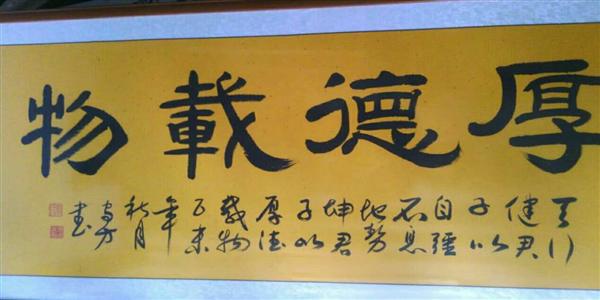 厚德載物
天行
健君
子以
自彊
不息
地勢
坤君
子以
厚德
載物
乙未
年
秋月
書